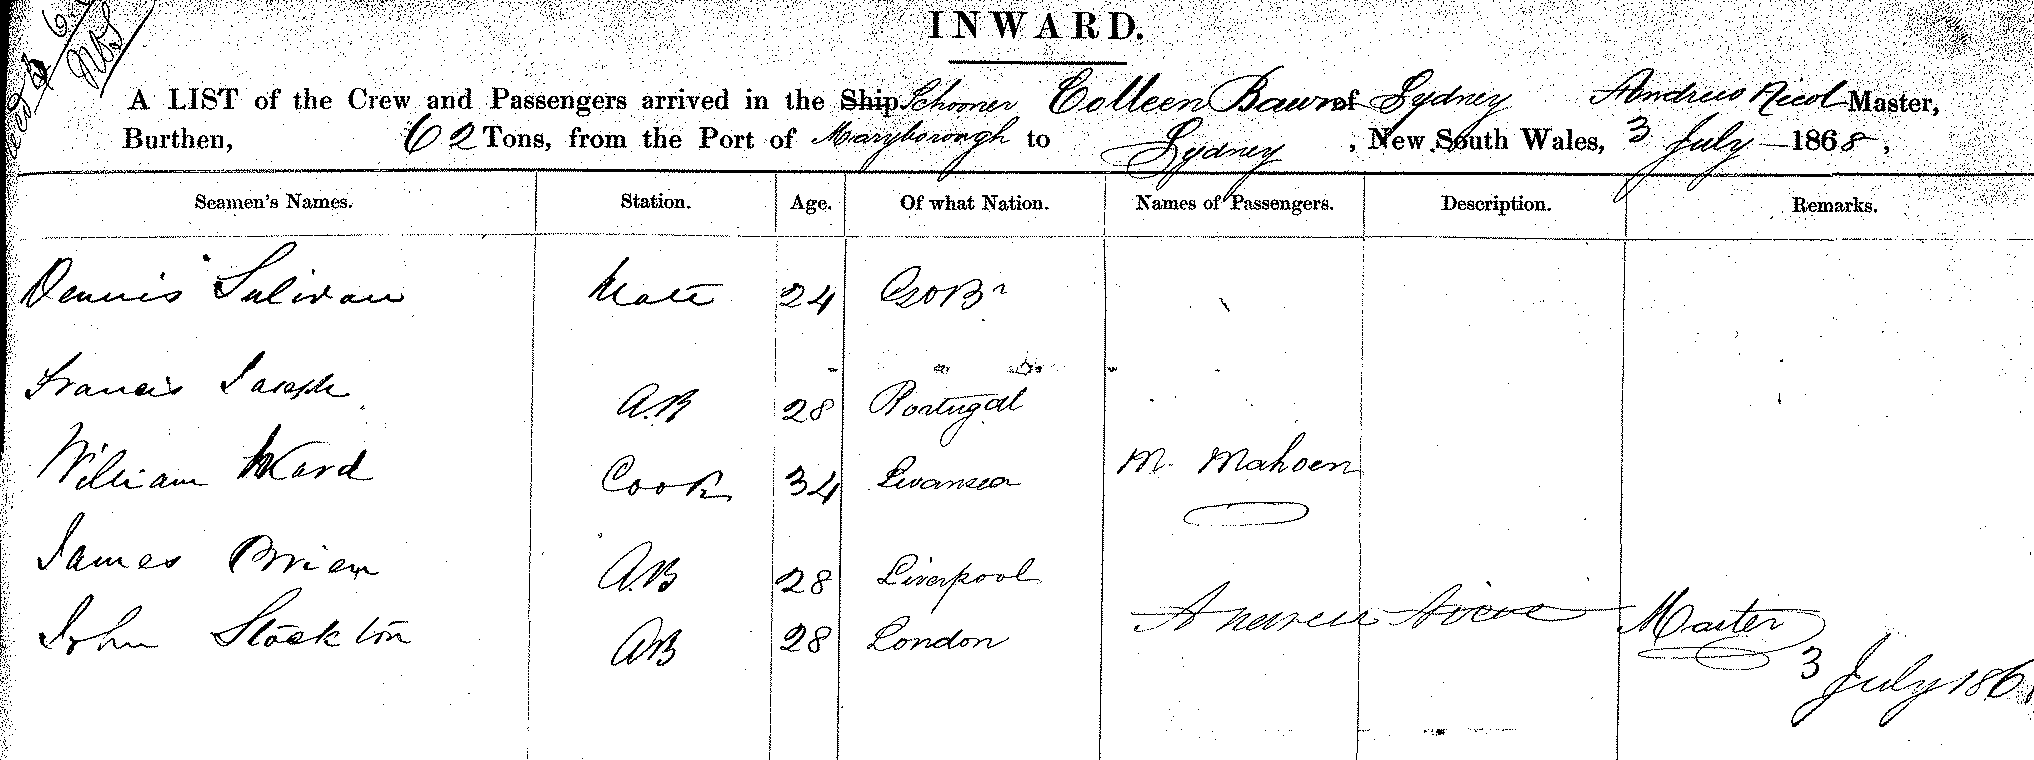 INWARD.
A LIST of the Crew and Passengers arrived in the Ship Schooner Colleen Bawn of Sydney Andrew Nicol Master,
Burthen, 62 Tons, from the Port of Maryborough to Sydney, New South Wales, 3 July 1868,
Seamen's Names. Station. Age. Of what Nation. Names of Passengers. Description. Remarks.
Dennis Sulivan Mate 24 
Francis Joseph A.B 28 Portugal
William Ward Cook 34 Swansea M. Mahoen
James Brien A.B 28 Liverpool
John Stockton AB 28 London Andrew Nicol Master
3 July 186